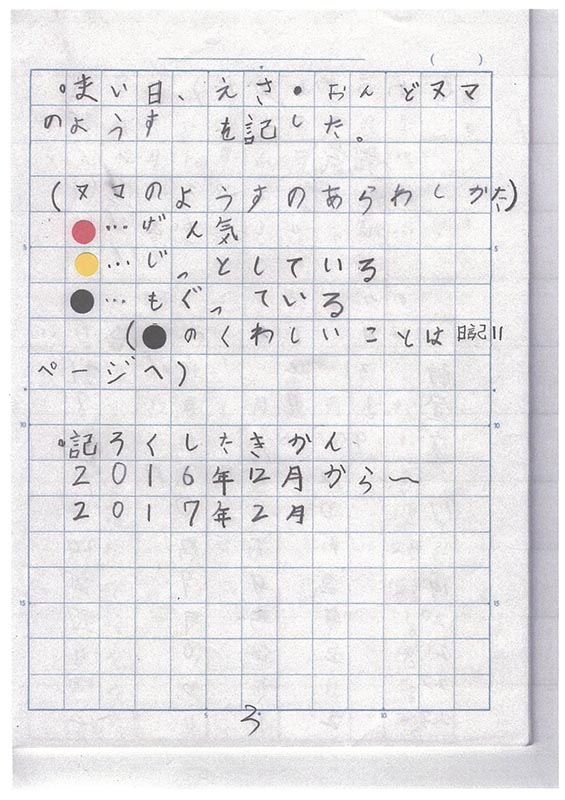 •まい日、えさ・おんどヌマ
のようす を記した。
(ヌマのようすのあらわしかた)
●…げん気
●…じっとしている
●…もぐっている
(●のくわしいことは日記11
ページへ)
•記ろくしたきかん
2016年12月から〜
2017年2月
3